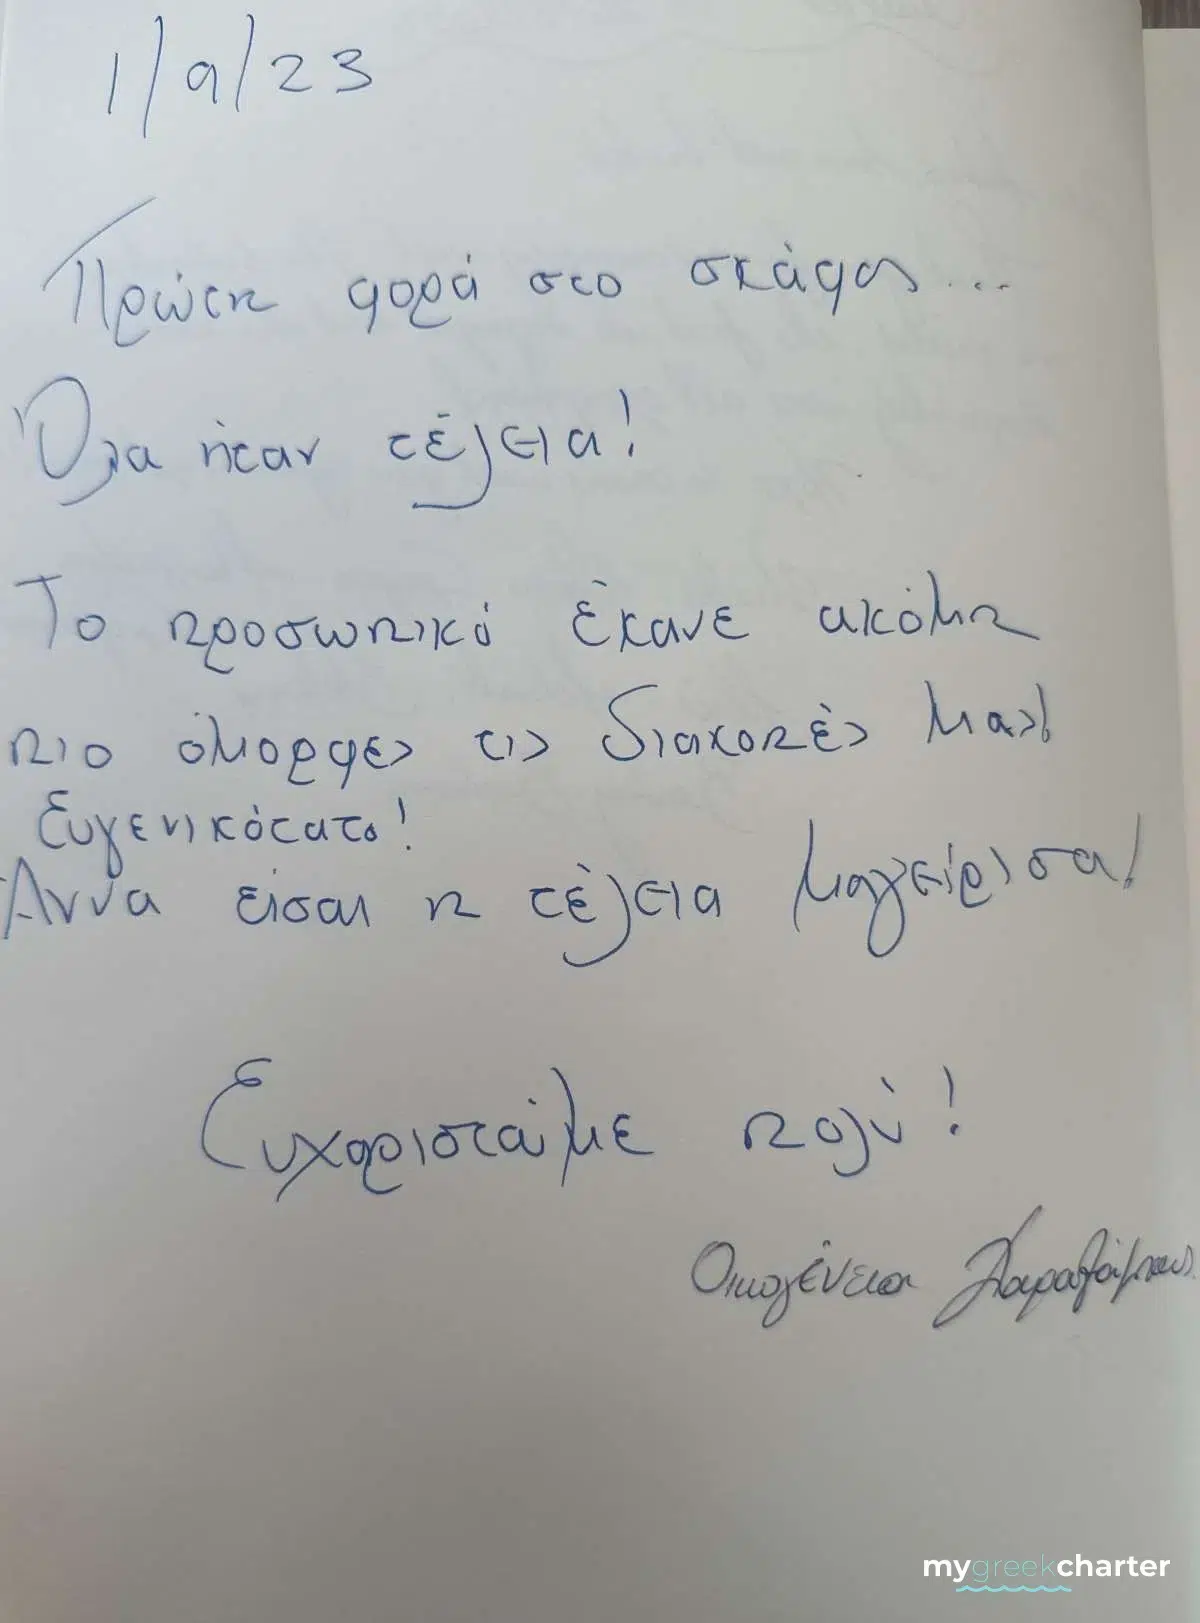 1/9/23
Πρώτη φορά στο σκάφος...
Όλα ήταν τέλεια!
Το προσωπικό έκανε ακόμη
πιο όμορφες τις διακοπές μας!
Ευγενικότατο!
Άννα είσαι η τέλεια μαγείρισσα!
Ευχαριστούμε πολύ!
Οικογένεια
mygreekcharter